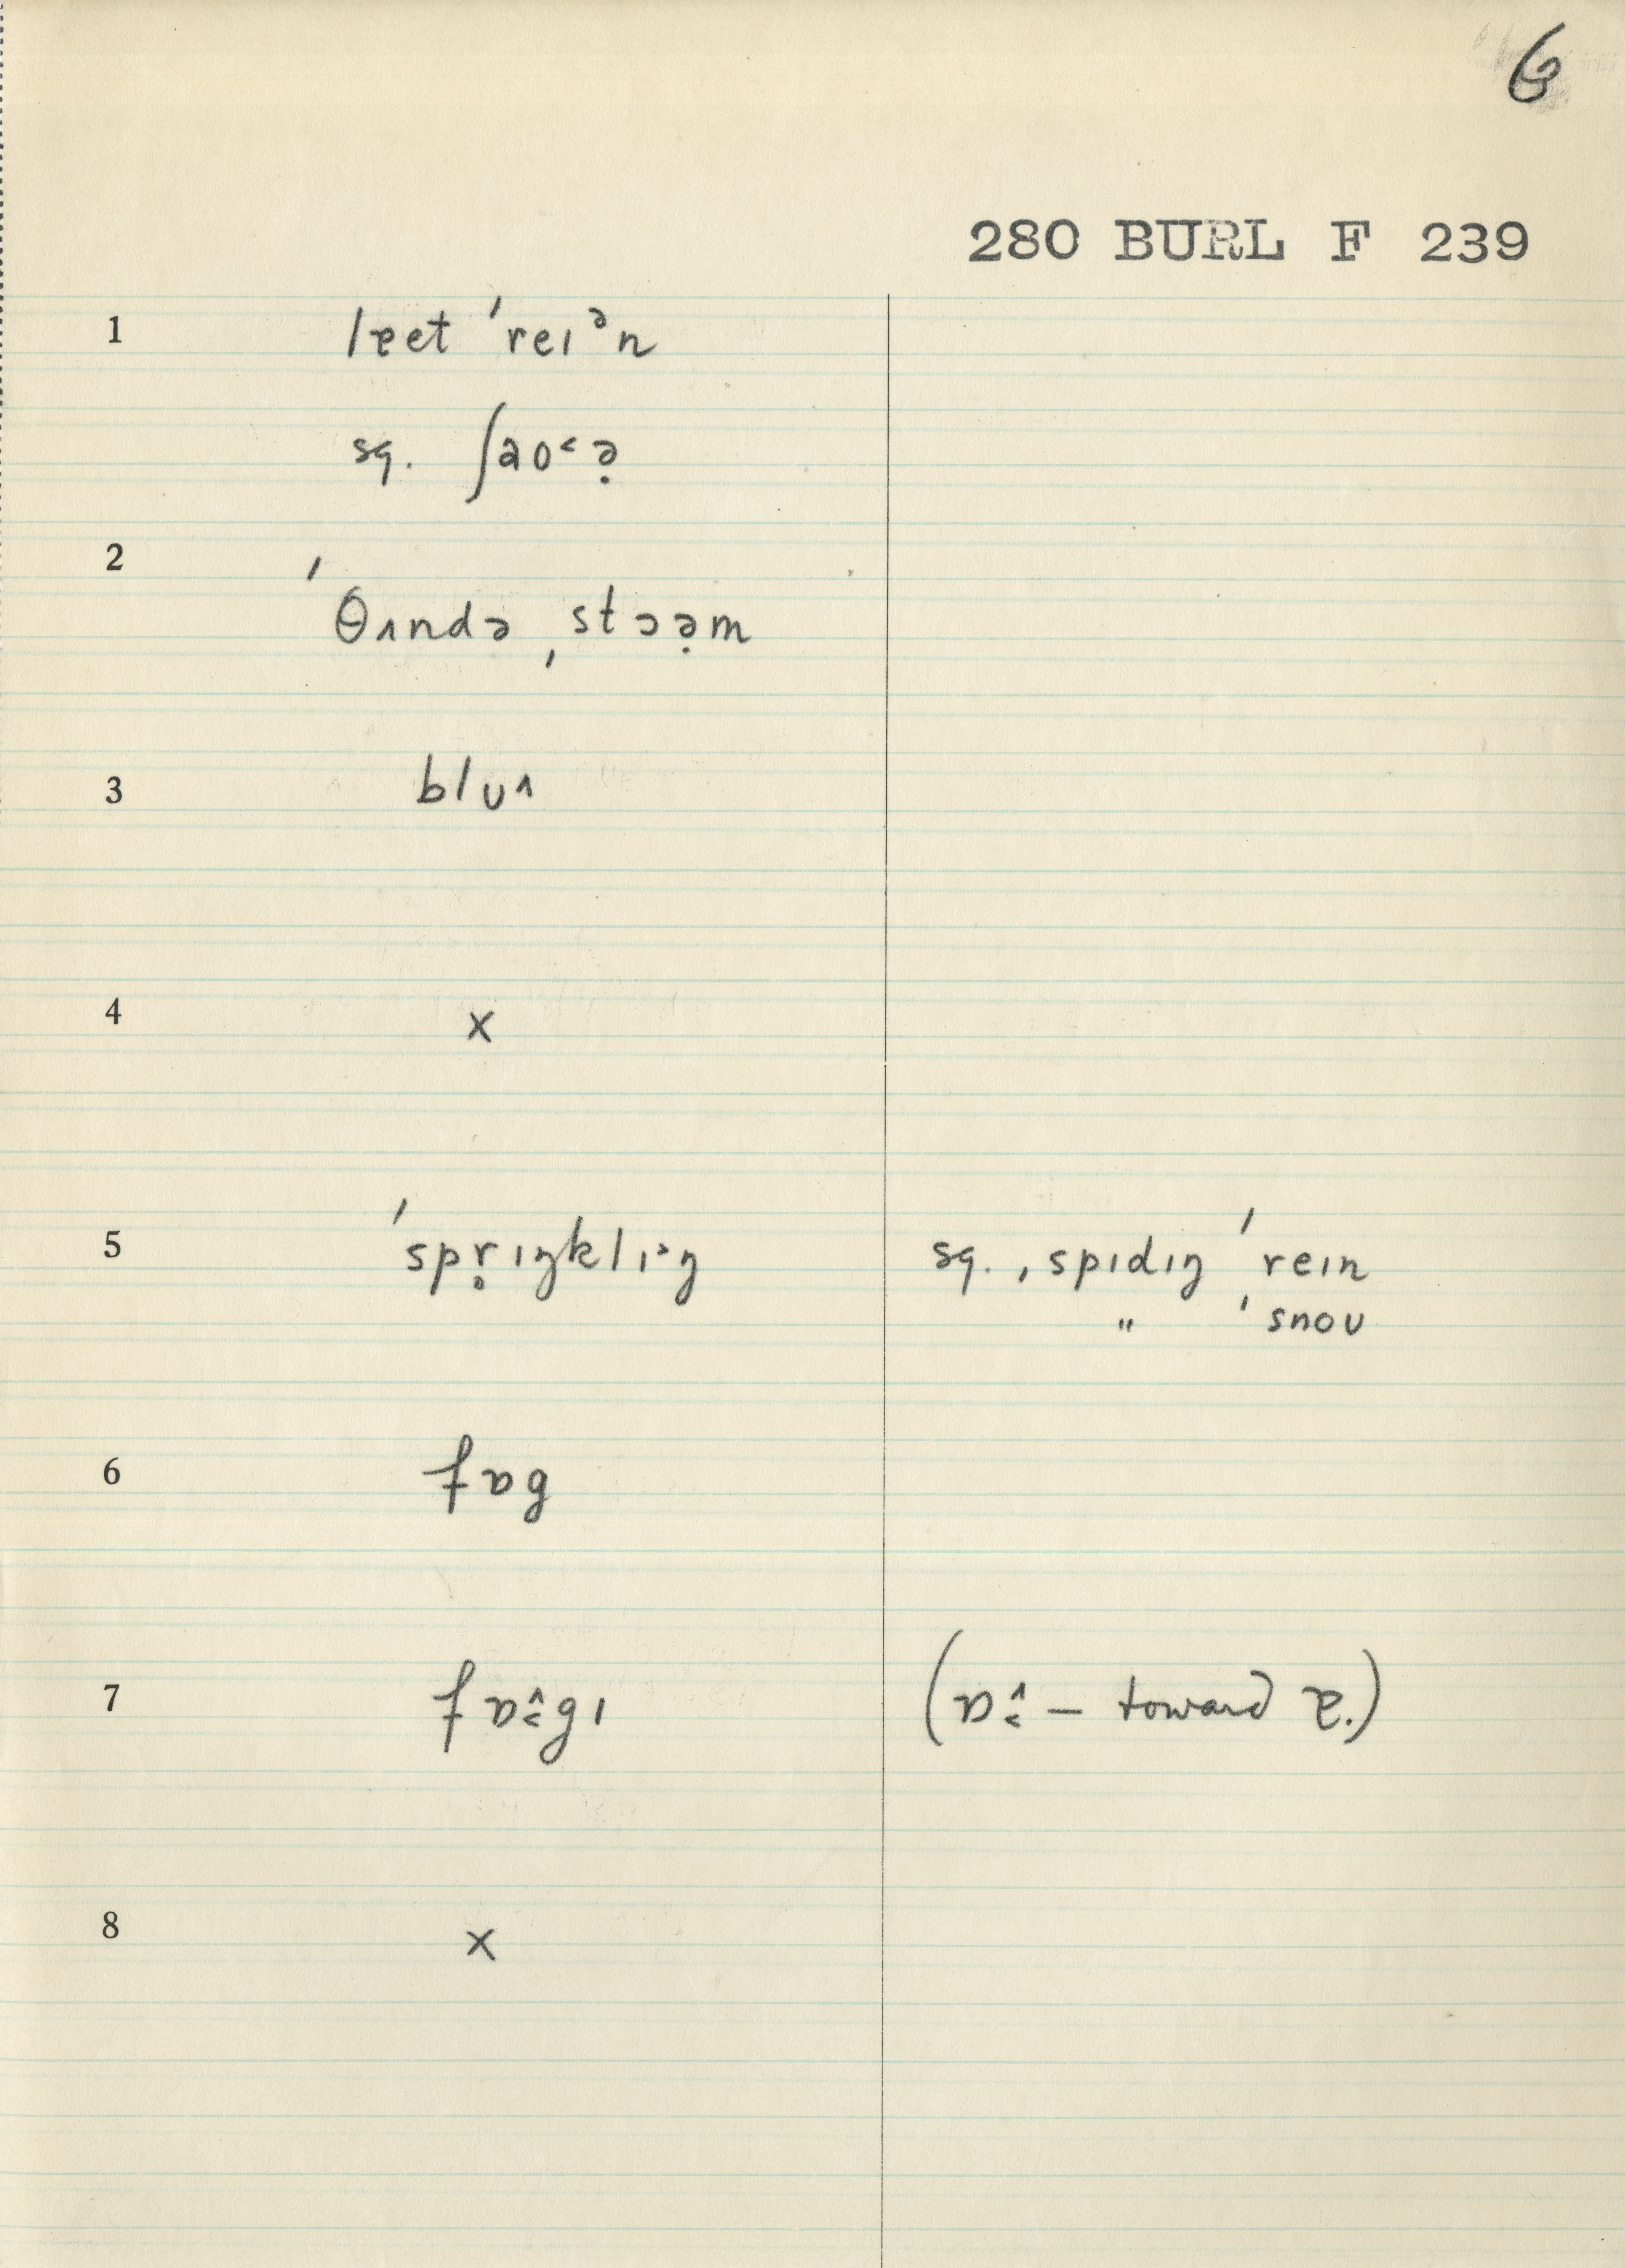 6
280 BURL F 239
1 lɐet ˈreɪᵊn
sq. ʃaʊ˂ə̣
2 ˈθʌndə ˌstɔə̣m
3 blu˄
4 x
5 ˈspṛɪŋklɪ˃ŋ sq. ˌspɪdɪŋ ˈreɪn
" ˈsnoʊ
6 fɒg
7 fɒ̂gɪ (ɒ̂ – toward ɐ.)
8 x